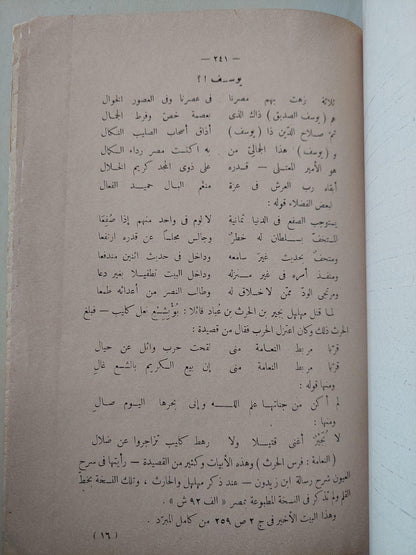 — ٢٤١ —
يوسف !؟
ثلاثة زهت بهم مصرنا فى عصرنا وفى العصور الخوال
هم ( يوسف الصديق ) ذاك الذى بعصمة خص وفرط الجمال
ثم صلاح الدين ذا ( يوسف ) أذاق أصحاب الصليب النكال
و ( يوسف ) هذا الجمالىّ من به اكتست مصر رداء الكمال
هو الأمير المعتلى — قدره على ذوى المجد كريم الخلال
أبقاه رب العرش فى عزة منعّم البال حميد الفعال
لبعض الفضلاء قوله :
يستوجب الصفع فى الدنيا ثمانية لا لوم فى واحد منهم إذا صُفِعَا
المستخفّ بسلطان له خطرٌ وجالس مجلسًا عن قدره ارتفعا
ومتحفٌ بحديث غيرَ سامعه وداخل فى حديث اثنين مندفعا
ومنفذ أمره فى غير منزله وداخل البيت تطفيلا بغير دعا
ومرتجى الودّ ممن لا خلاق له وطالب النصر من أعدائه طمعا
لما قتل مهلهل بجير بن الحرث بن عُباد قائلا : بُؤْ بِشِسْعِ نعل كليب — فبلغ
الحرث ذلك وكان اعتزل الحرب فقال من قصيدة :
قرّبا مربط النعامة منى لقحت حرب وائل عن حيال
قرّبا مربط النعامة منى إن بيع الكريم بالشسع غالِ
ومنها قوله :
لم أكن من جناتها علم اللـه وإنى بحرها اليوم صالِ
ومنها :
لا بُجَيْرٌ أغنى فتيلا ولا رهط كليب تزاجروا عن ضلال
( النعامة : فرس الحرث ) وهذه الأبيات وكثير من القصيدة — رأيتها فى سرح
العيون شرح رسالة ابن زيدون — عند ذكر مهلهل والحارث ، وتلك النسخة بخط
القلم ولم تذكر فى النسخة المطبوعة بمصر « الف ٩٢ ش » .
وهذا البيت الأخير فى ج ٢ ص ٢٥٩ من كامل المبرّد .
( ١٦ )